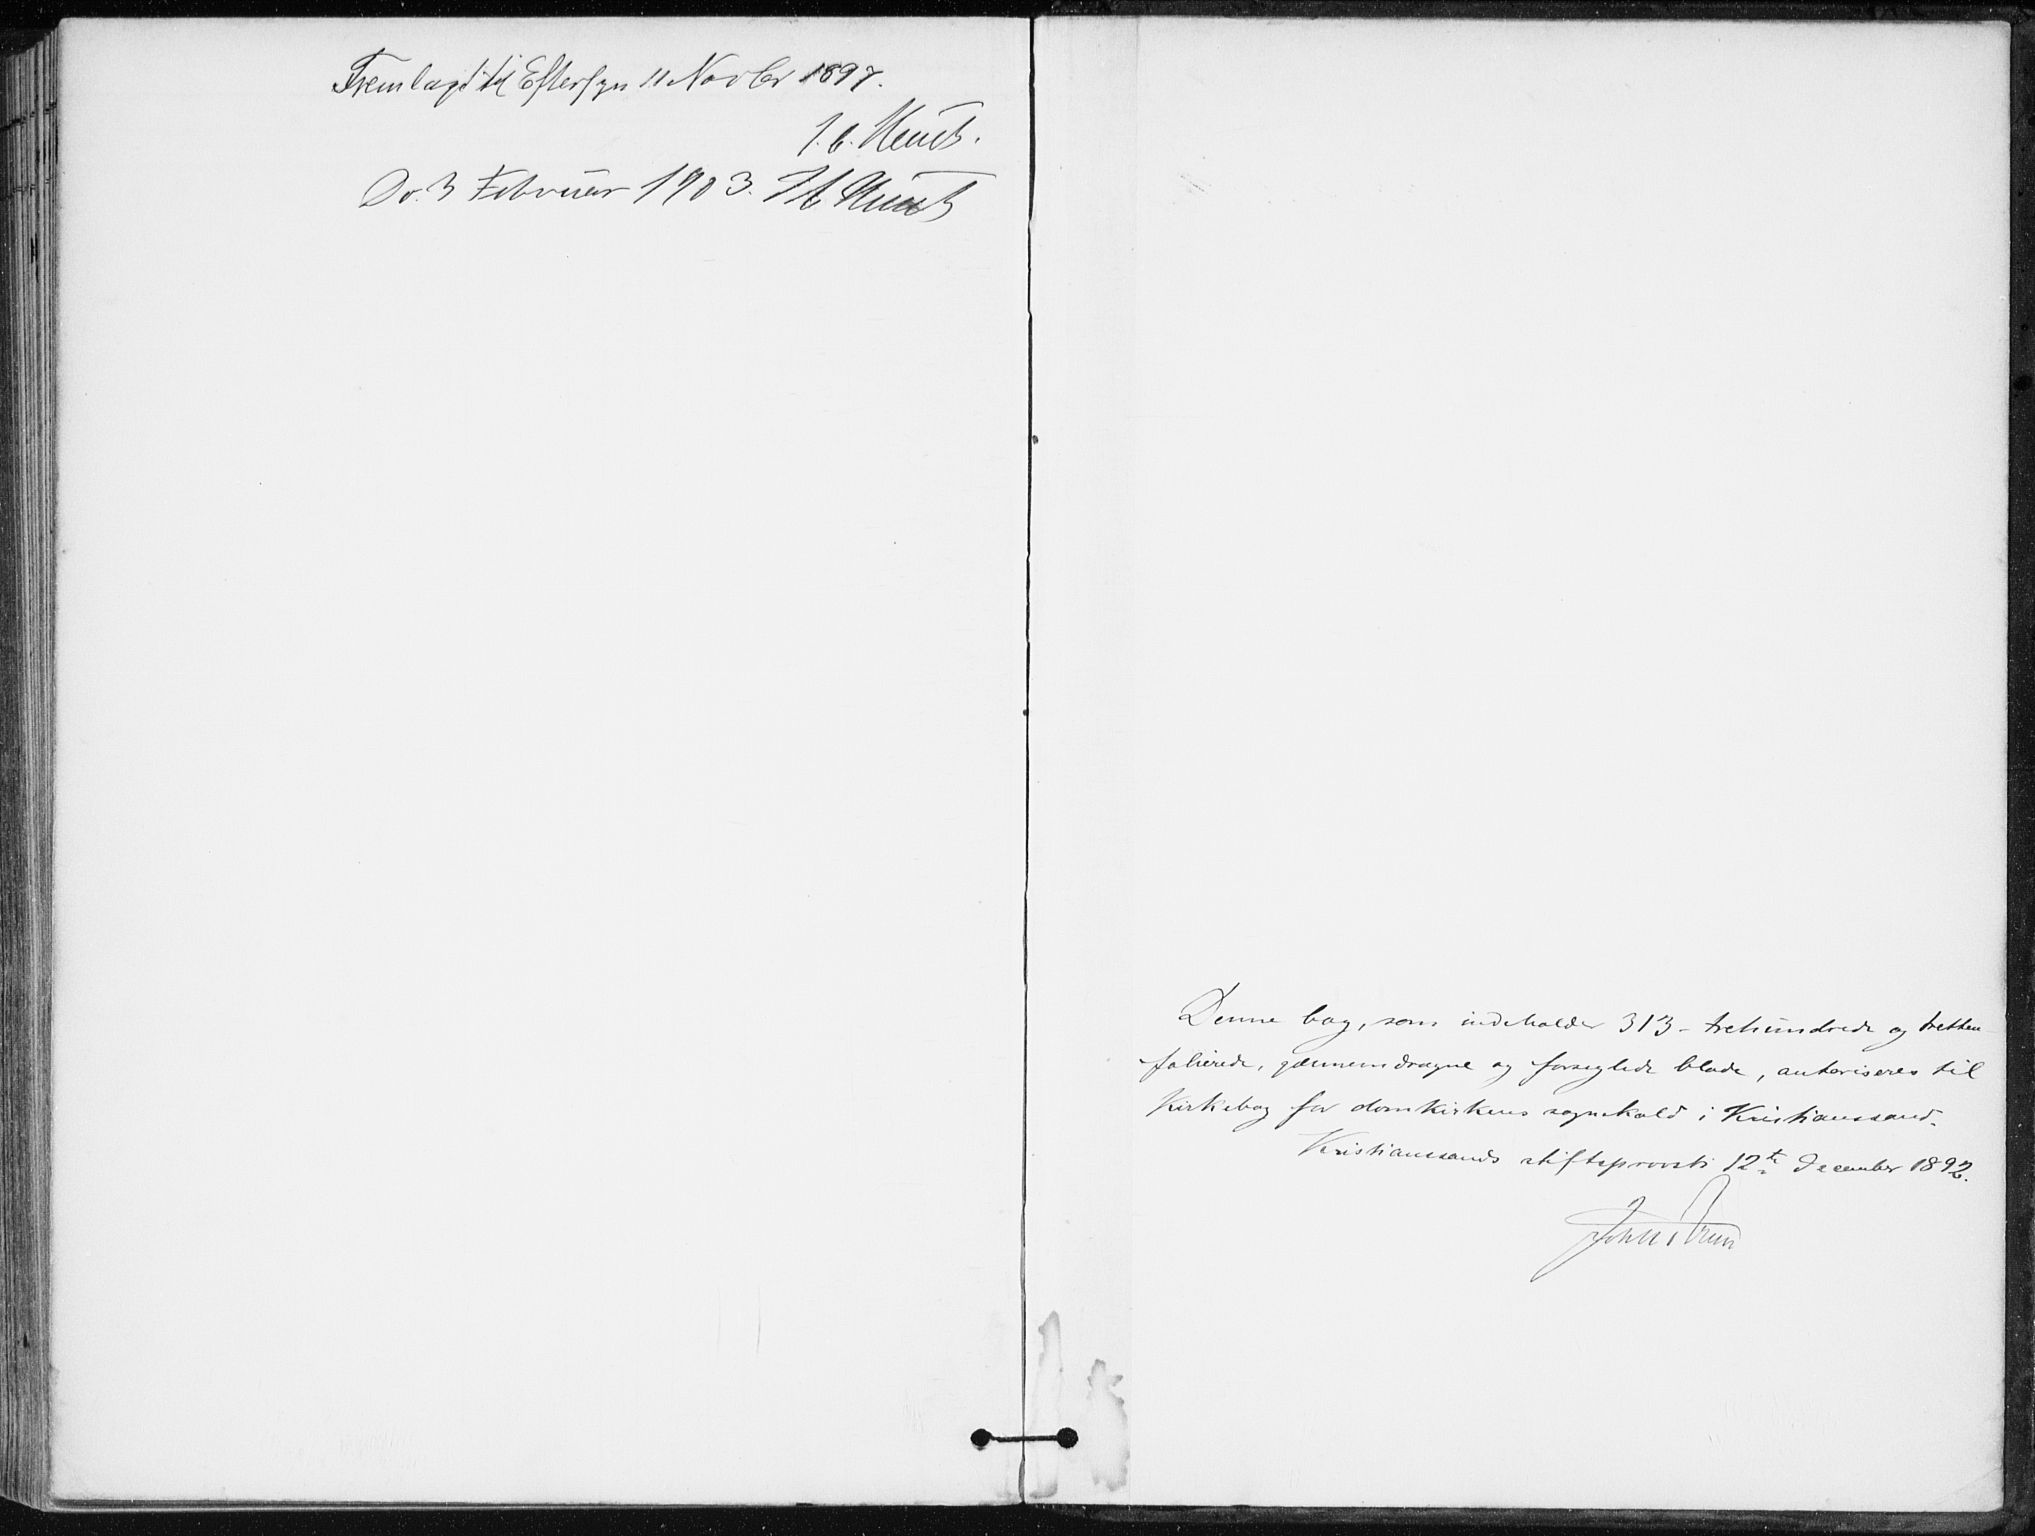 Fremlagt til Eftersyn 11 Novbr 1897.
J. C. Heuch.
Do. 3 Februar 1903. J C Heuch
Denne bog, som indeholder 313 - trehundrede og tretten -
folierede, gjennemdragne og forseglede blade, autoriseres til
Kirkebog for domkirkens sognekald i Kristianssand.
Kristianssands stiftsprovsti 12te December 1892.
Johs Brun